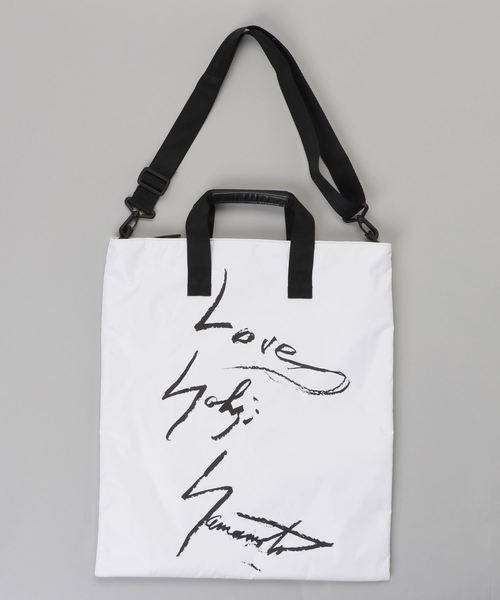 Love
Yohji
Yamamoto